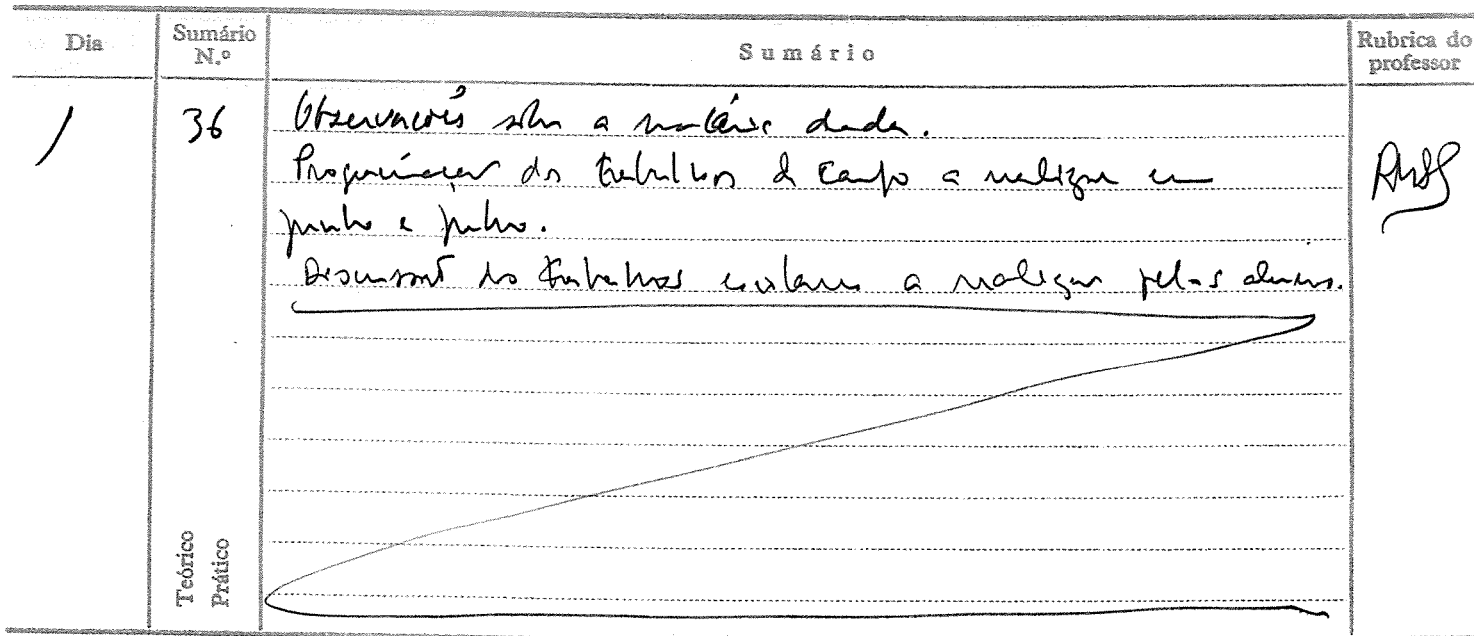 Dia
Sumário N.º
Sumário
Rubrica do professor
1
36
Observações sobre a matéria dada.
Programação dos trabalhos de campo a realizar em
junho e julho.
Discussão dos trabalhos escolares a realizar pelos alunos.
Teórico
Prático